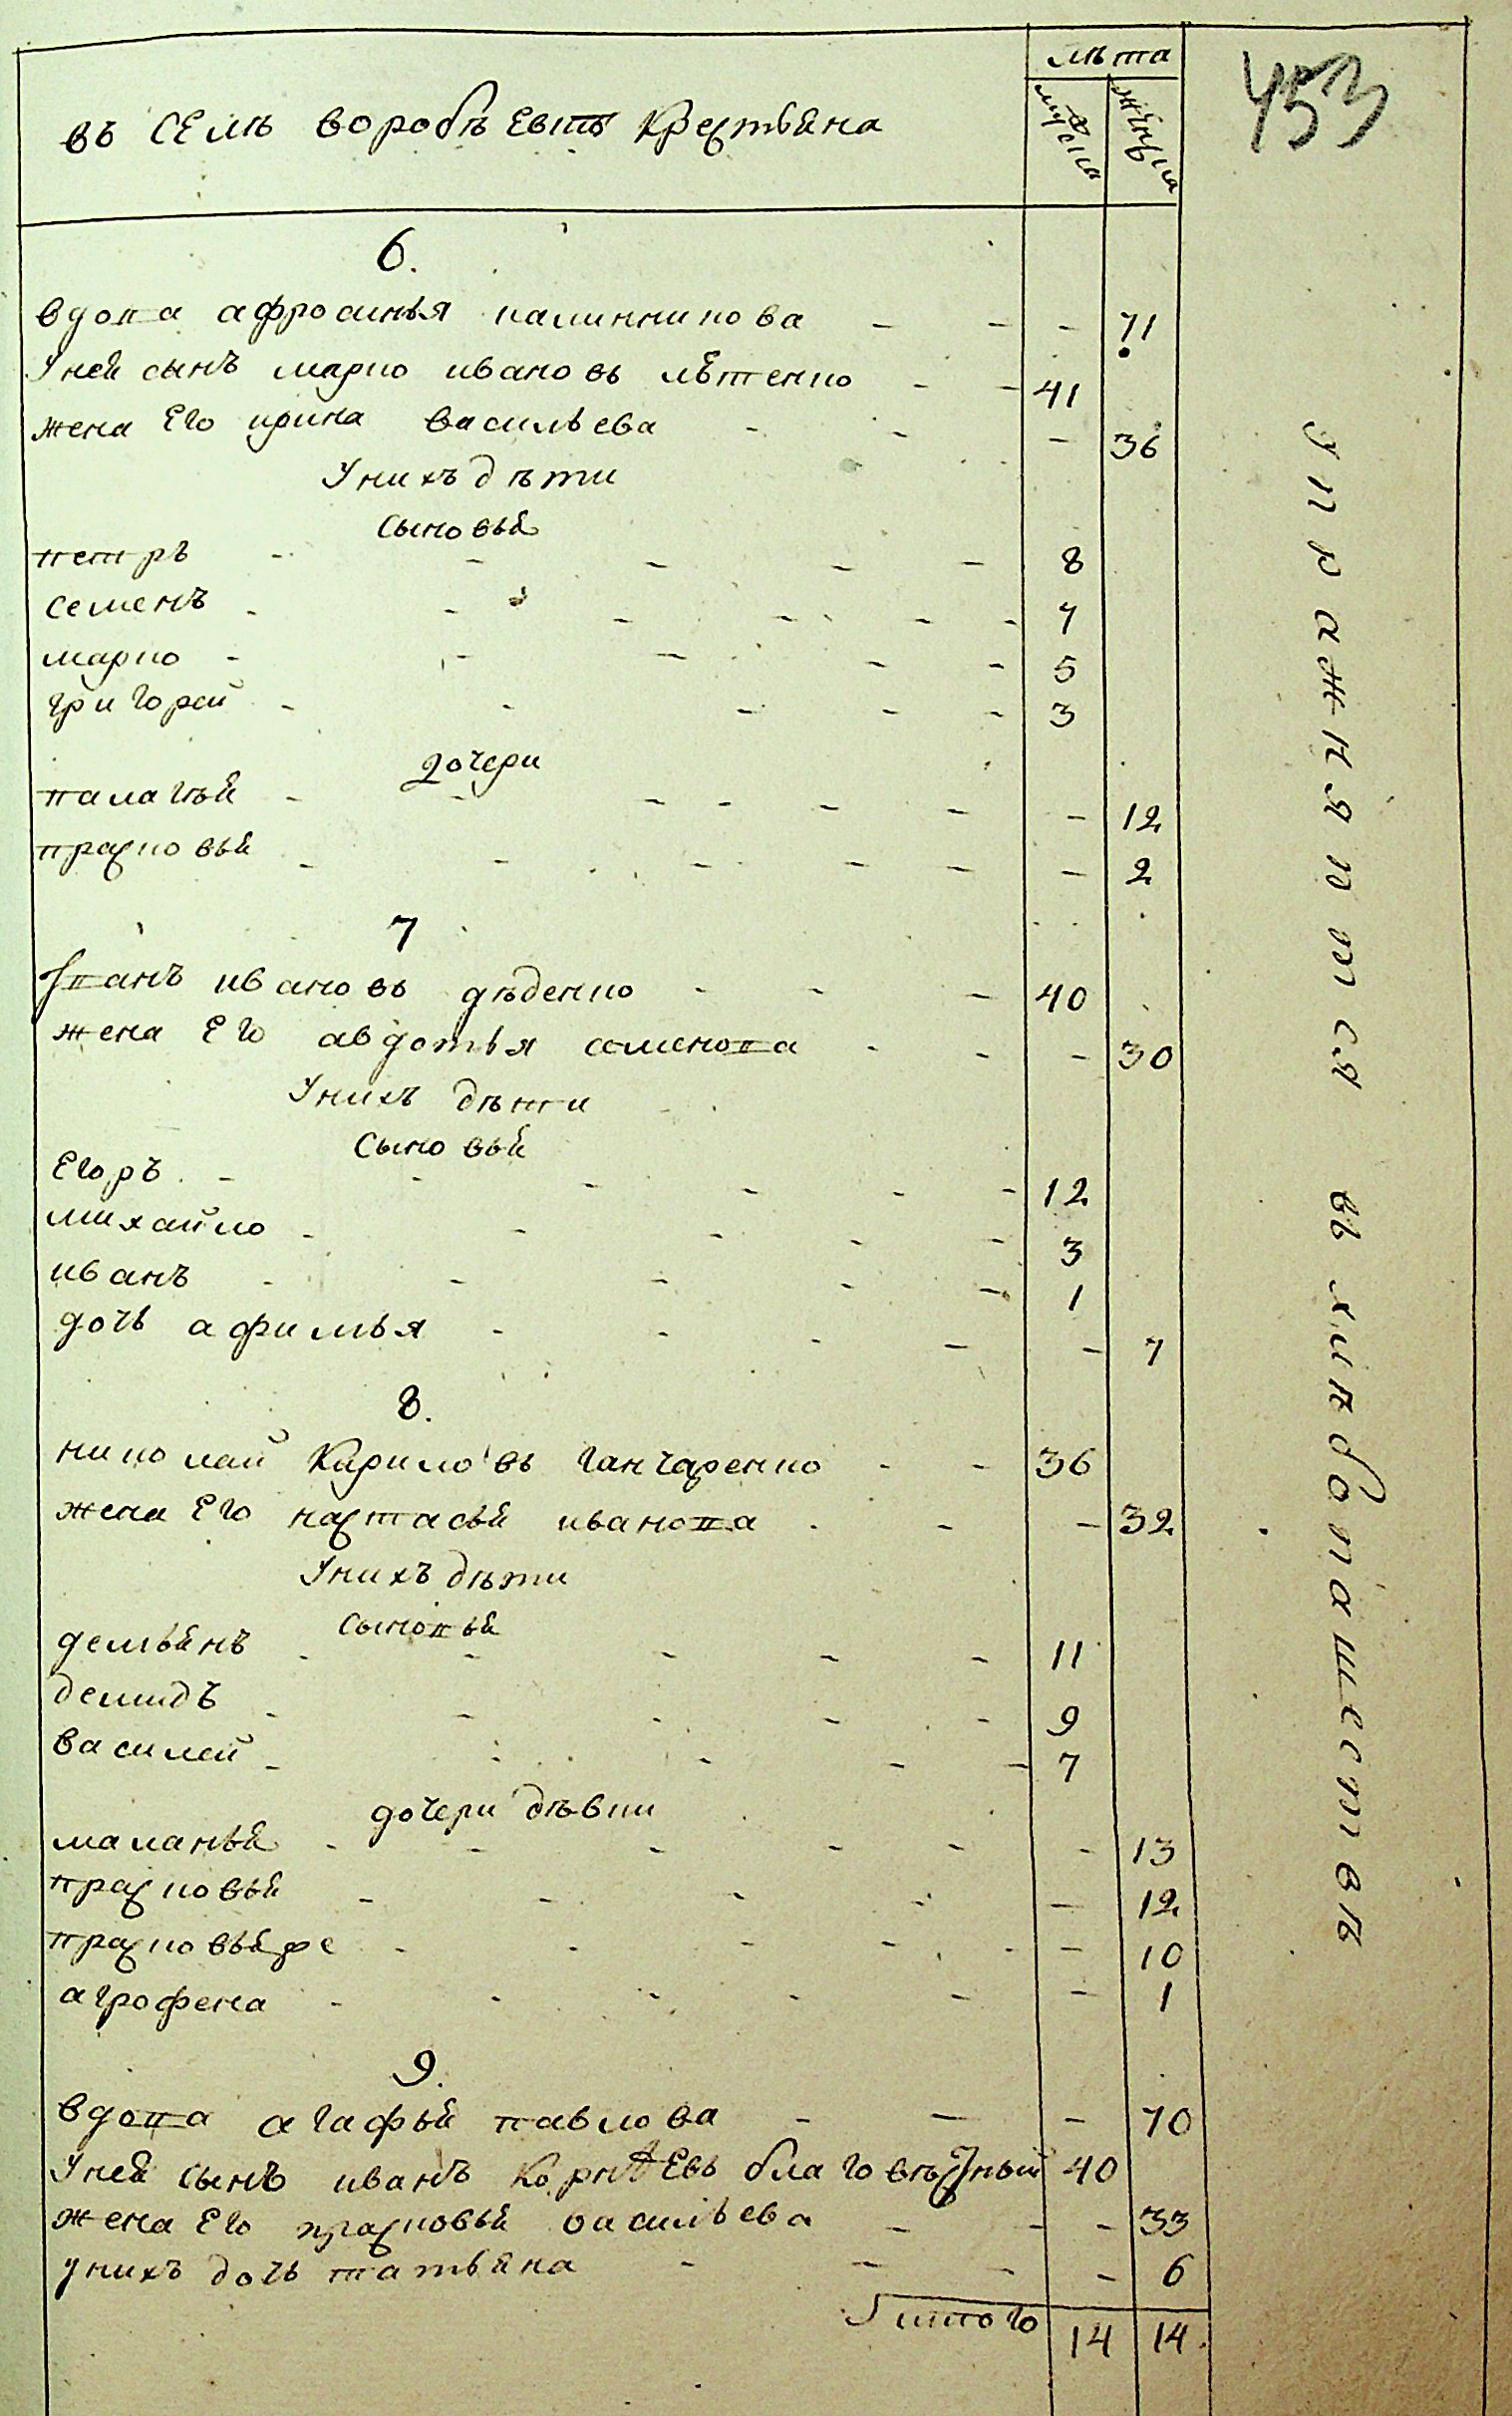 лѣта
453
въ селѣ воробъевъѣ крестьяна
мужеска
женска
6.
вдова афросинья калинникова - - - 71
У ней сынъ марко ивановъ лѣтенко - - 41
жена Его ирина васильева - - - 36
У нихъ дѣти
сыновья
петръ - - - - - 8
семенъ - - - - - - 7
марко - - - - - 5
григорей - - - - - 3
дочери
палагъя - - - - - - - 12
прасковья - - - - - - 2
7
Иванъ ивановъ дѣденко - - - 40
жена Его авдотья семенова - - - 30
У нихъ дѣти
сыновья
Егоръ - - - - - - 12
михайло - - - - - 3
иванъ - - - - - 1
дочь афимья - - - - - 7
8.
николай Кириловъ ганчаренко - - 36
жена Его настасья иванова - - - 32
У нихъ дѣти
сыновья
демьянъ - - - - - 11
демидъ - - - - - 9
василей - - - - - 7
дочери дѣвки
маланья - - - - - - 13
прасковья - - - - - 12
прасковья же - - - - - 10
агрофена - - - - - - 1
9.
вдова агафья павлова - - - 70
У ней сынъ иванъ Корнѣевъ благовѣсный 40
жена Его прасковья васильева - - - 33
у нихъ дочь татьяна - - - - 6
Итого 14 14
упражняются въ хлѣбопашествѣ